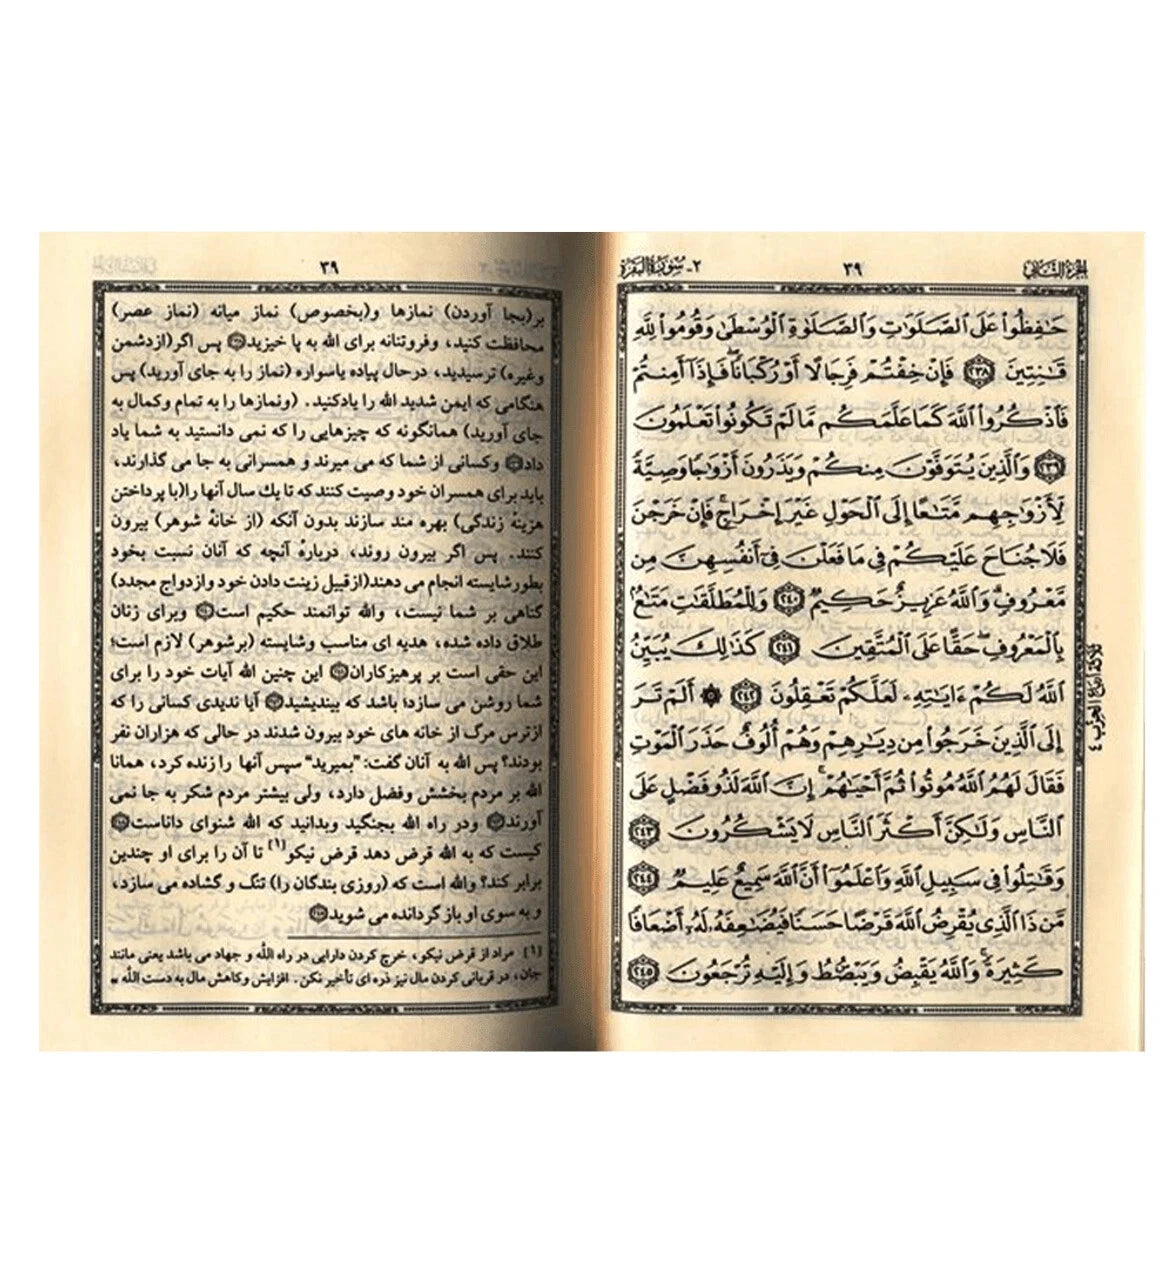 الجزء الثاني
٣٩
٢- سورة البقرة
حَٰفِظُوا۟ عَلَى ٱلصَّلَوَٰتِ وَٱلصَّلَوٰةِ ٱلْوُسْطَىٰ وَقُومُوا۟ لِلَّهِ
قَٰنِتِينَ ٢٣٨ فَإِنْ خِفْتُمْ فَرِجَالًا أَوْ رُكْبَانًا ۖ فَإِذَآ أَمِنتُمْ
فَٱذْكُرُوا۟ ٱللَّهَ كَمَا عَلَّمَكُم مَّا لَمْ تَكُونُوا۟ تَعْلَمُونَ
٢٣٩ وَٱلَّذِينَ يُتَوَفَّوْنَ مِنكُمْ وَيَذَرُونَ أَزْوَٰجًا وَصِيَّةً
لِّأَزْوَٰجِهِم مَّتَٰعًا إِلَى ٱلْحَوْلِ غَيْرَ إِخْرَاجٍ ۚ فَإِنْ خَرَجْنَ
فَلَا جُنَاحَ عَلَيْكُمْ فِى مَا فَعَلْنَ فِىٓ أَنفُسِهِنَّ مِن
مَّعْرُوفٍ ۗ وَٱللَّهُ عَزِيزٌ حَكِيمٌ ٢٤٠ وَلِلْمُطَلَّقَٰتِ مَتَٰعٌۢ
بِٱلْمَعْرُوفِ ۖ حَقًّا عَلَى ٱلْمُتَّقِينَ ٢٤١ كَذَٰلِكَ يُبَيِّنُ
ٱللَّهُ لَكُمْ ءَايَٰتِهِۦ لَعَلَّكُمْ تَعْقِلُونَ ٢٤٢ ۞ أَلَمْ تَرَ
إِلَى ٱلَّذِينَ خَرَجُوا۟ مِن دِيَٰرِهِمْ وَهُمْ أُلُوفٌ حَذَرَ ٱلْمَوْتِ
فَقَالَ لَهُمُ ٱللَّهُ مُوتُوا۟ ثُمَّ أَحْيَٰهُمْ ۚ إِنَّ ٱللَّهَ لَذُو فَضْلٍ عَلَى
ٱلنَّاسِ وَلَٰكِنَّ أَكْثَرَ ٱلنَّاسِ لَا يَشْكُرُونَ ٢٤٣
وَقَٰتِلُوا۟ فِى سَبِيلِ ٱللَّهِ وَٱعْلَمُوٓا۟ أَنَّ ٱللَّهَ سَمِيعٌ عَلِيمٌ ٢٤٤
مَّن ذَا ٱلَّذِى يُقْرِضُ ٱللَّهَ قَرْضًا حَسَنًا فَيُضَٰعِفَهُۥ لَهُۥٓ أَضْعَافًا
كَثِيرَةً ۚ وَٱللَّهُ يَقْبِضُ وَيَبْصُۜطُ وَإِلَيْهِ تُرْجَعُونَ ٢٤٥
ثلاثة أرباع الحزب ٤
٣٩
بر(بجا آوردن) نمازها و(بخصوص) نماز میانه (نماز عصر)
محافظت کنید، وفروتنانه برای الله به پا خیزید پس اگر(ازدشمن
وغیره) ترسیدید، درحال پیاده یاسواره (نماز را به جای آورید) پس
هنگامی که ایمن شدید الله را یادکنید. (ونمازها را به تمام وکمال به
جای آورید) همانگونه که چیزهایی را که نمی دانستید به شما یاد
داد وکسانی از شما که می میرند و همسرانی به جا می گذارند،
باید برای همسران خود وصیت کنند که تا یك سال آنها را(با پرداختن
هزینهٔ زندگی) بهره مند سازند بدون آنکه (از خانهٔ شوهر) بیرون
کنند. پس اگر بیرون روند، دربارهٔ آنچه که آنان نسبت بخود
بطورشایسته انجام می دهند(ازقبیل زینت دادن خود وازدواج مجدد)
گناهی بر شما نیست، والله توانمند حکیم است وبرای زنان
طلاق داده شده، هدیه ای مناسب وشایسته (برشوهر) لازم است؛
این حقی است بر پرهیزکاران این چنین الله آیات خود را برای
شما روشن می سازد؛ باشد که بیندیشید آیا ندیدی کسانی را که
ازترس مرگ از خانه های خود بیرون شدند در حالی که هزاران نفر
بودند؟ پس الله به آنان گفت: "بمیرید" سپس آنها را زنده کرد، همانا
الله بر مردم بخشش وفضل دارد، ولی بیشتر مردم شکر به جا نمی
آورند ودر راه الله بجنگید وبدانید که الله شنوای داناست
کیست که به الله قرض دهد قرض نیکو[١] تا آن را برای او چندین
برابر کند؟ والله است که (روزی بندگان را) تنگ و گشاده می سازد،
و به سوی او باز گردانده می شوید
[١] مراد از قرض نیکو، خرج کردن دارایی در راه الله و جهاد می باشد یعنی مانند
جان، در قربانی کردن مال نیز ذره ای تأخیر نکن. افزایش وکاهش مال به دست الله =